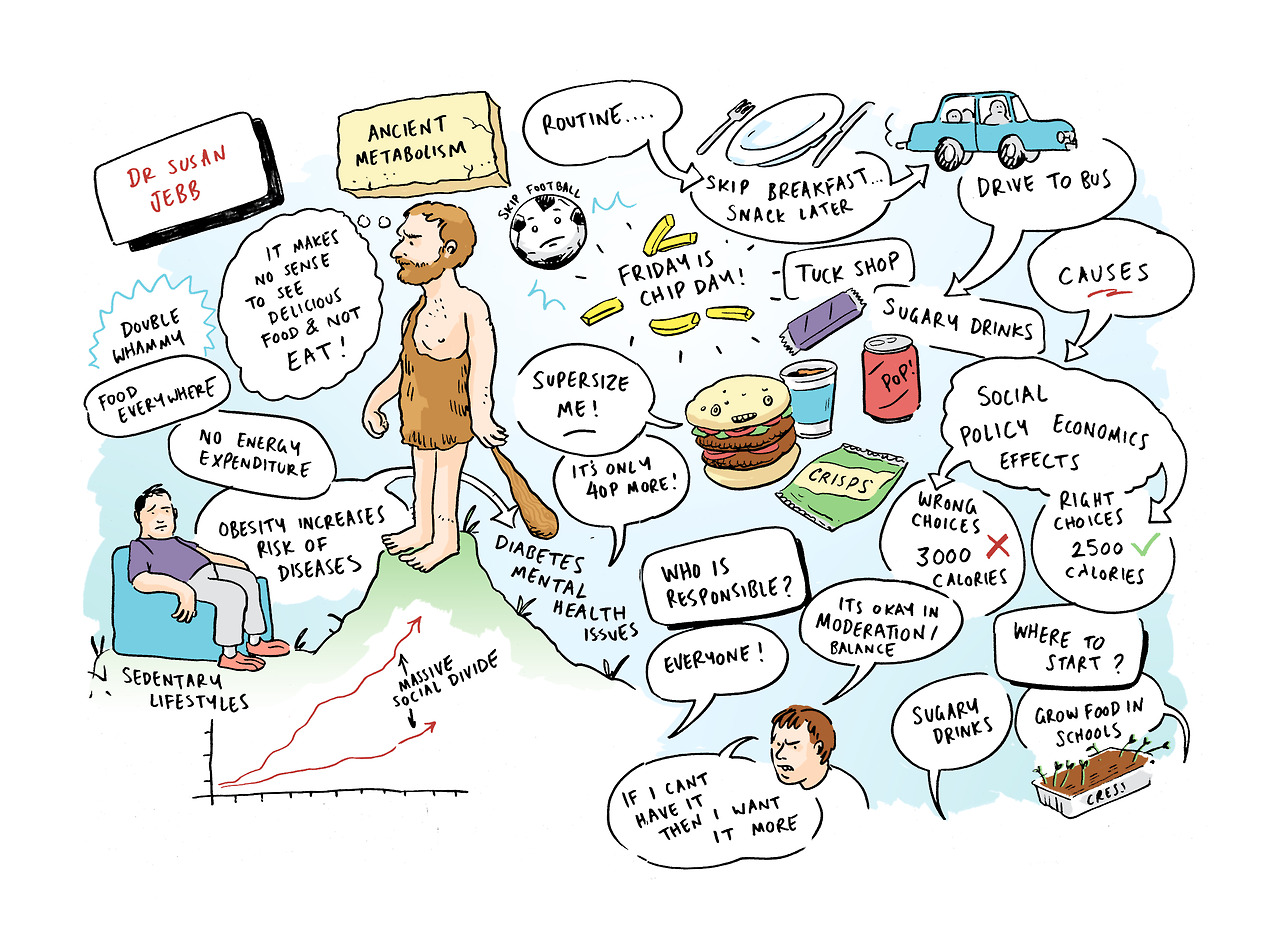 DR SUSAN
JEBB
ANCIENT
METABOLISM
IT MAKES
NO SENSE
TO SEE
DELICIOUS
FOOD & NOT
EAT!
DOUBLE
WHAMMY
FOOD
EVERYWHERE
NO ENERGY
EXPENDITURE
OBESITY INCREASES
RISK OF
DISEASES
DIABETES
MENTAL
HEALTH
ISSUES
SEDENTARY
LIFESTYLES
MASSIVE
SOCIAL DIVIDE
ROUTINE....
SKIP BREAKFAST...
SNACK LATER
DRIVE TO BUS
SKIP FOOTBALL
FRIDAY IS
CHIP DAY!
TUCK SHOP
SUGARY DRINKS
POP!
SUPERSIZE
ME!
IT'S ONLY
40P MORE!
CRISPS
CAUSES
SOCIAL
POLICY ECONOMICS
EFFECTS
WRONG
CHOICES
3000
CALORIES
RIGHT
CHOICES
2500
CALORIES
WHO IS
RESPONSIBLE?
EVERYONE!
ITS OKAY IN
MODERATION/
BALANCE
IF I CANT
HAVE IT
THEN I WANT
IT MORE
WHERE TO
START?
SUGARY
DRINKS
GROW FOOD IN
SCHOOLS
CRESS